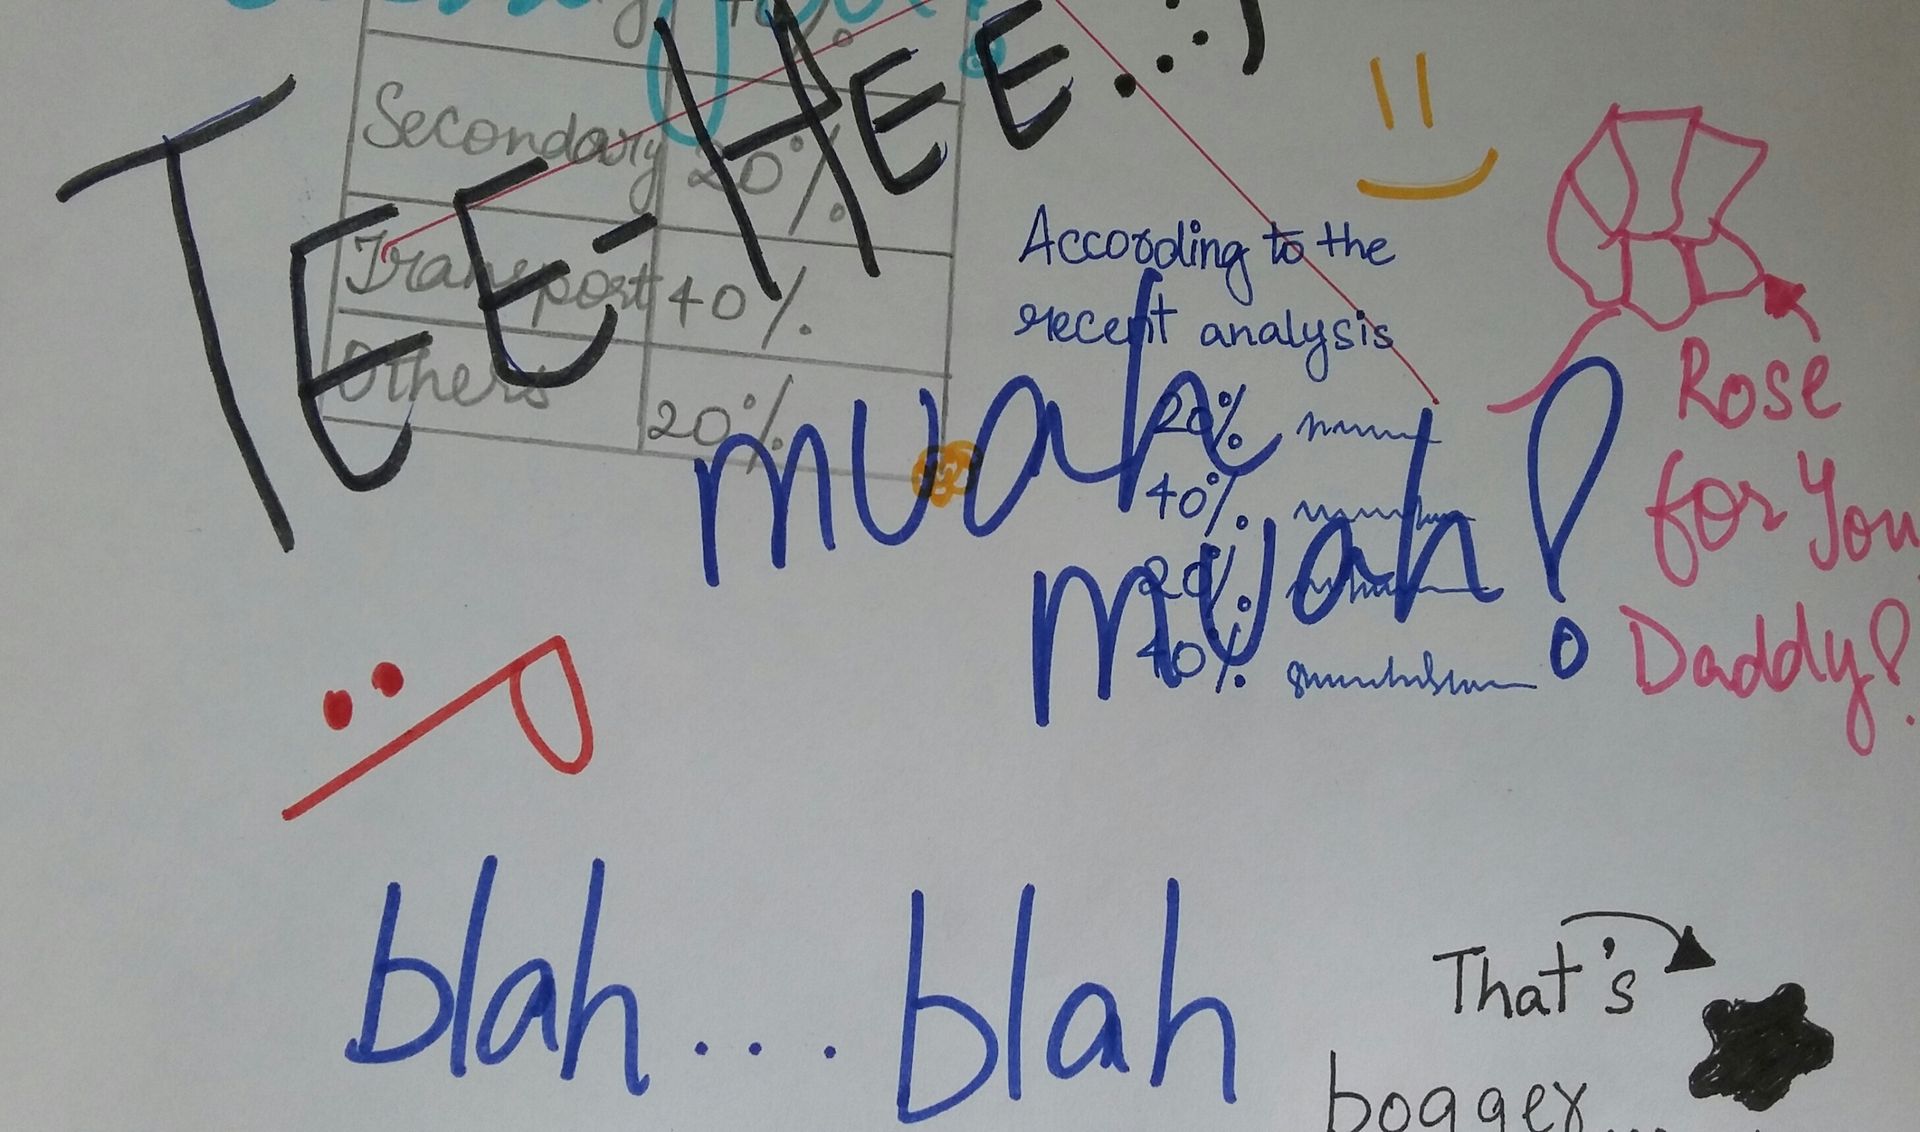 TEE-HEE..:)
Secondary 20%
Transport 40%
Others 20%
According to the
recent analysis
20%
40%
20%
40%
muah
muah!
Rose
for You
Daddy!
blah... blah
That's
bogger....